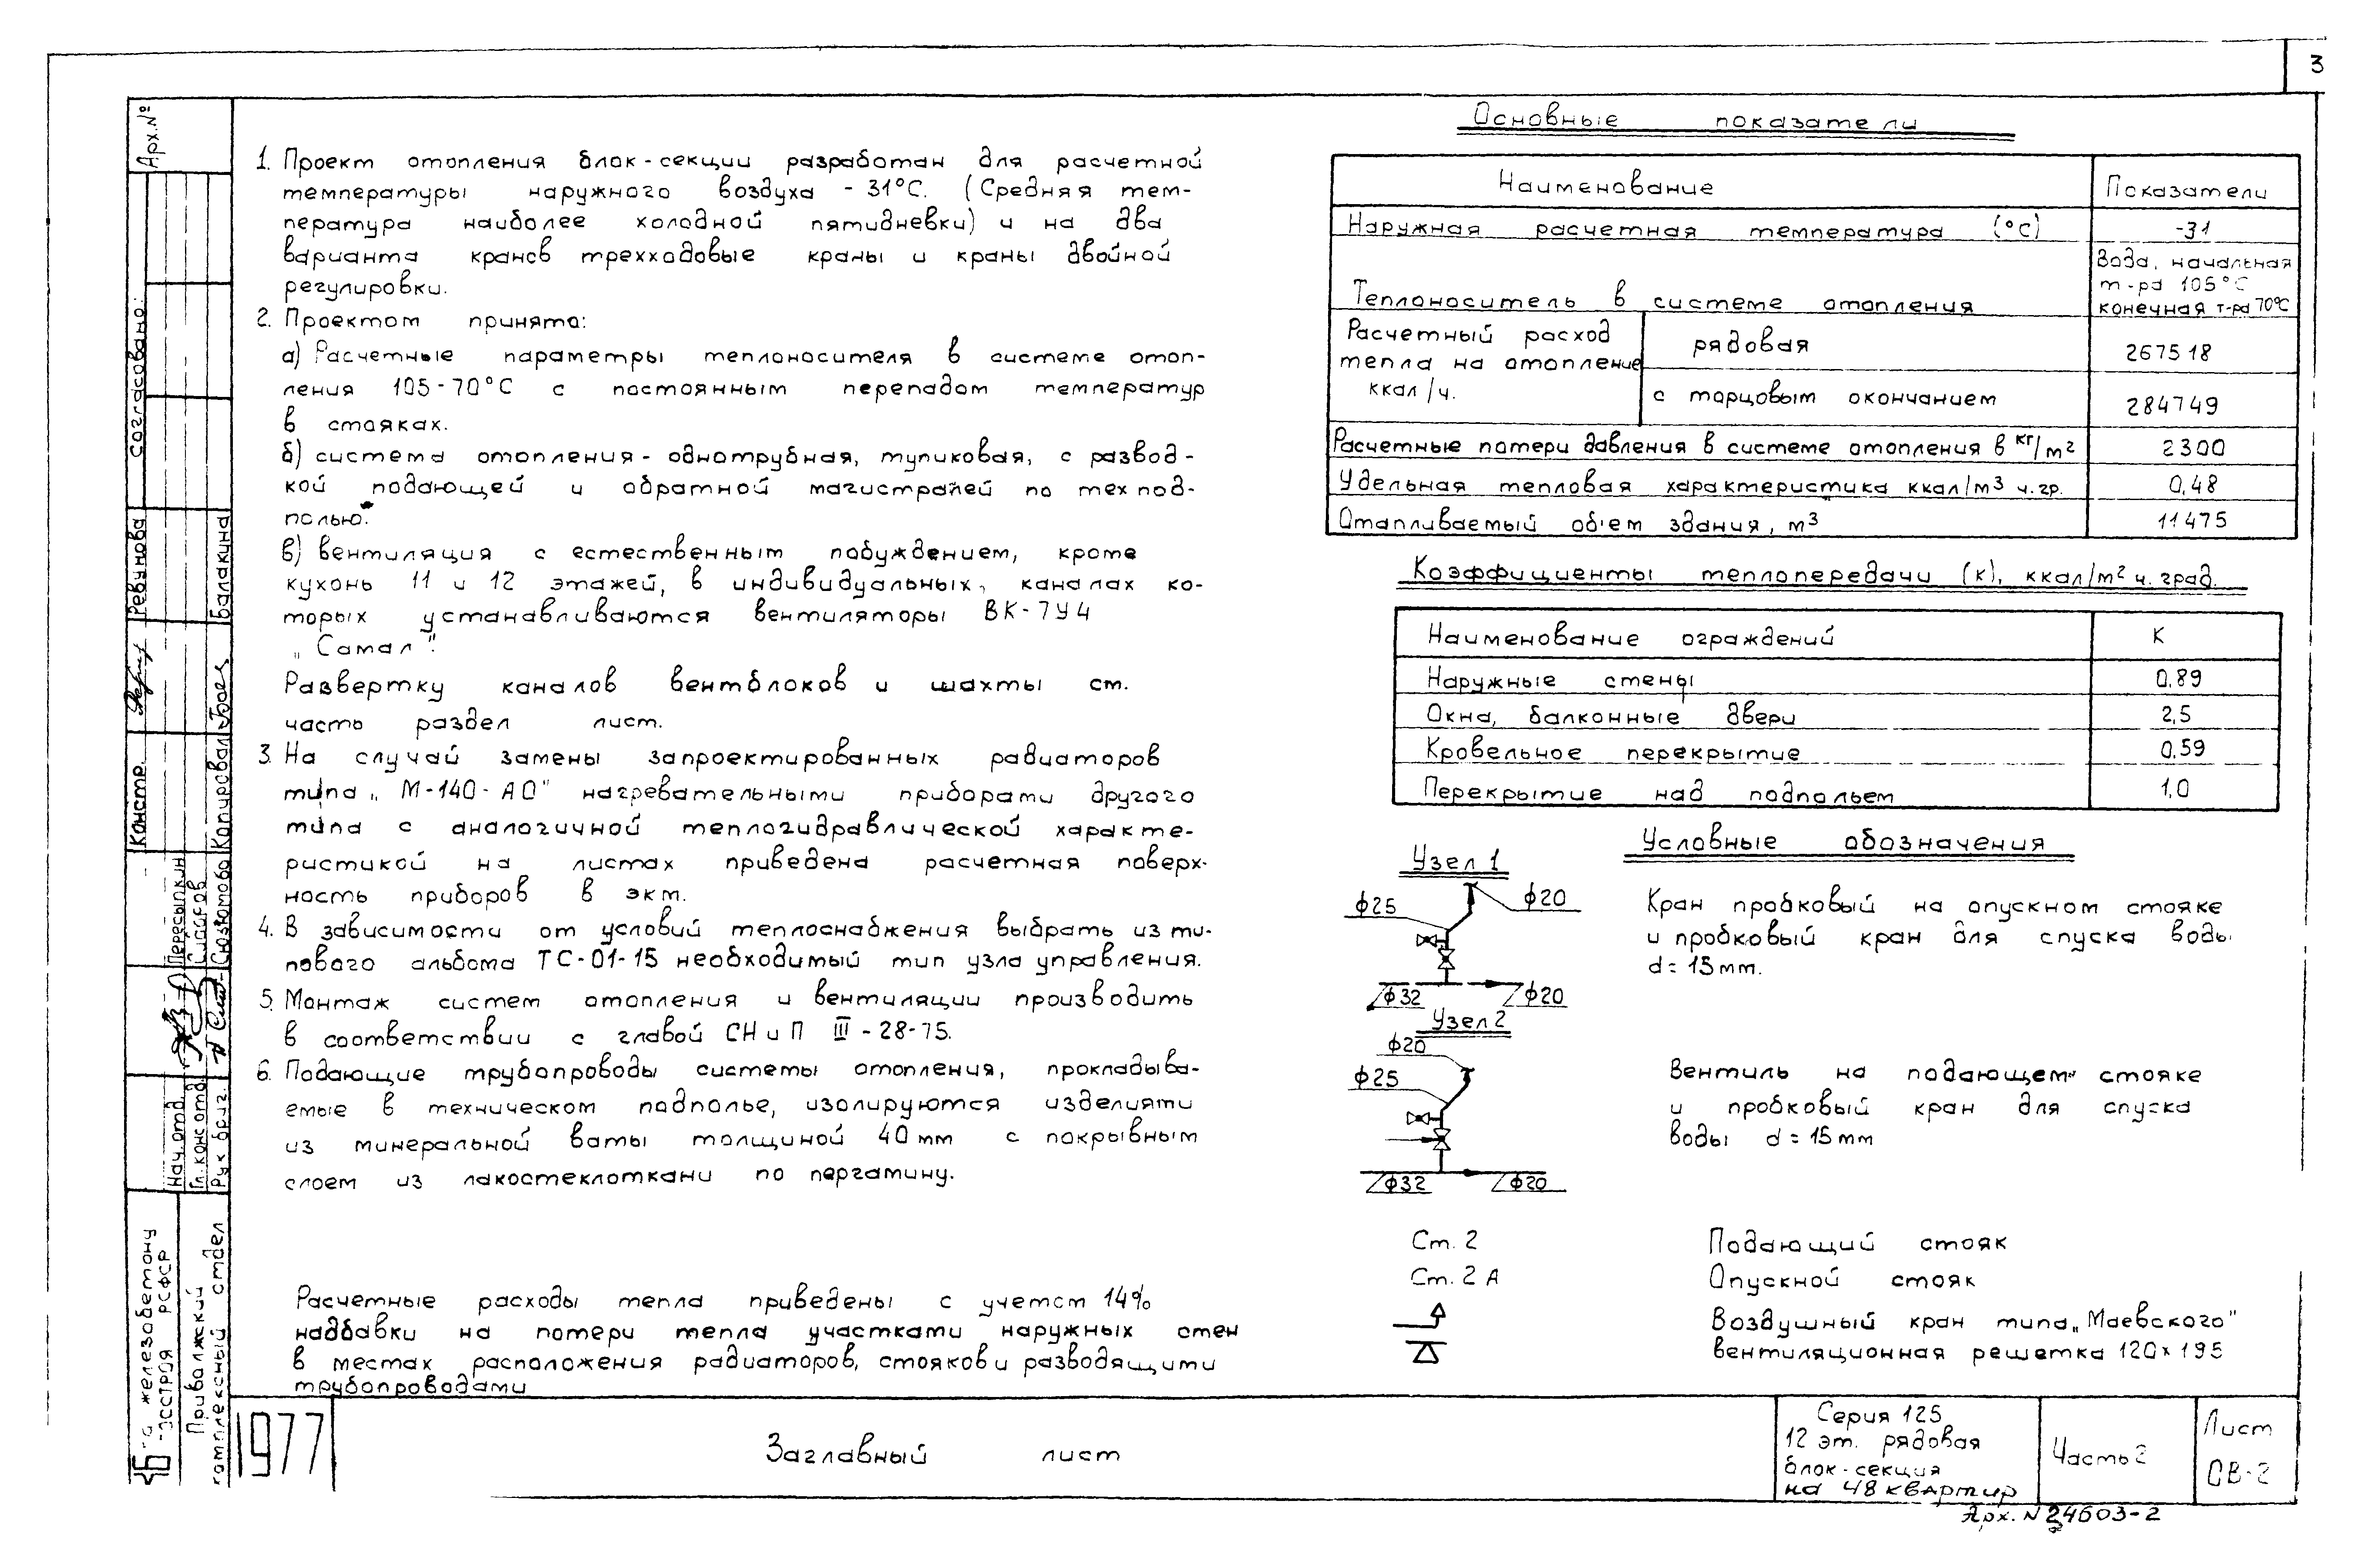 3
1. Проект отопления блок-секции разработан для расчетной
температуры наружного воздуха - 31°С. (Средняя тем-
пература наиболее холодной пятидневки) и на два
варианта кранов трехходовые краны и краны двойной
регулировки.
2. Проектом принято:
а) Расчетные параметры теплоносителя в системе отоп-
ления 105-70°С с постоянным перепадом температур
в стояках.
б) система отопления - однотрубная, тупиковая, с развод-
кой подающей и обратной магистралей по тех под-
полью.
в) вентиляция с естественным побуждением, кроме
кухонь 11 и 12 этажей, в индивидуальных, каналах ко-
торых устанавливаются вентиляторы ВК-7У4
„Самал".
Развертку каналов вентблоков и шахты см.
часть раздел лист.
3. На случай замены запроектированных радиаторов
типа „ М-140-АО" нагревательными приборами другого
типа с аналогичной теплогидравлической характе-
ристикой на листах приведена расчетная поверх-
ность приборов в экм.
4. В зависимости от условий теплоснабжения выбрать из ти-
пового альбома ТС-01-15 необходимый тип узла управления.
5. Монтаж систем отопления и вентиляции производить
в соответствии с главой СНиП III-28-75.
6. Подающие трубопроводы системы отопления, прокладыва-
емые в техническом подполье, изолируются изделиями
из минеральной ваты толщиной 40мм с покрывным
слоем из лакостеклоткани по пергамину.
Расчетные расходы тепла приведены с учетом 14%
надбавки на потери тепла участками наружных стен
в местах расположения радиаторов, стояков и разводящими
трубопроводами
Основные показатели
Наименование Показатели
Наружная расчетная температура (°С) -31
Теплоноситель в системе отопления Вода, начальная
т-ра 105°С
конечная т-ра 70°С
Расчетный расход
тепла на отопление
ккал/ч.
рядовая 267518
с торцовым окончанием 284749
Расчетные потери давления в системе отопления в кг/м2 2300
Удельная тепловая характеристика ккал/м3 ч.гр. 0,48
Отапливаемый об'ем здания, м3 11475
Коэффициенты теплопередачи (к), ккал/м2 ч. град.
Наименование ограждений К
Наружные стены 0,89
Окна, балконные двери 2,5
Кровельное перекрытие 0,59
Перекрытие над подпольем 1,0
Условные обозначения
Узел 1
ф25 ф20
ф32 ф20
Кран пробковый на опускном стояке
и пробковый кран для спуска воды
d=15мм.
Узел 2
ф20
ф25
ф32 ф20
Вентиль на подающем стояке
и пробковый кран для спуска
воды d=15мм
Ст. 2 Подающий стояк
Ст. 2А Опускной стояк
Воздушный кран типа „Маевского"
вентиляционная решетка 120х195
1977
Заглавный лист
Серия 125
12 эт. рядовая
блок-секция
на 48 квартир
Часть 2
Лист
ОВ-2
Арх. N 24603-2
Арх.№
согласовано:
Ревунова
Балакина
Констр.
Копировал
Пересыпкин
Сысоров
Сюзюмова
Нач.отд.
Гл.конс отд.
Рук бриг.
железобетону
РСФСР
Приволжский
комплексный отдел